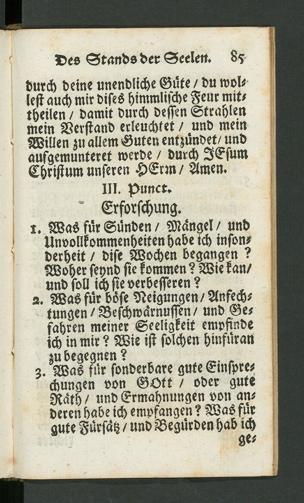 Des Stands der Seelen. 85
durch deine unendliche Güte / du wol-
lest auch mir dises himmlische Feur mit-
theilen / damit durch dessen Strahlen
mein Verstand erleuchtet / und mein
Willen zu allem Guten entzündet / und
aufgemunteret werde / durch JEsum
Christum unseren HErrn / Amen.
III. Punct.
Erforschung.
1. Was für Sünden / Mängel / und
Unvollkommenheiten habe ich inson-
derheit / dise Wochen begangen ?
Woher seynd sie kommen ? Wie kan /
und soll ich sie verbesseren ?
2. Was für böse Neigungen / Anfech-
tungen / Beschwärnussen / und Ge-
fahren meiner Seeligkeit empfinde
ich in mir ? Wie ist solchen hinfüran
zu begegnen ?
3. Was für sonderbare gute Einspre-
chungen von GOtt / oder gute
Räth / und Ermahnungen von an-
deren habe ich empfangen ? Was für
gute Fürsätz / und Begürden hab ich
ge-